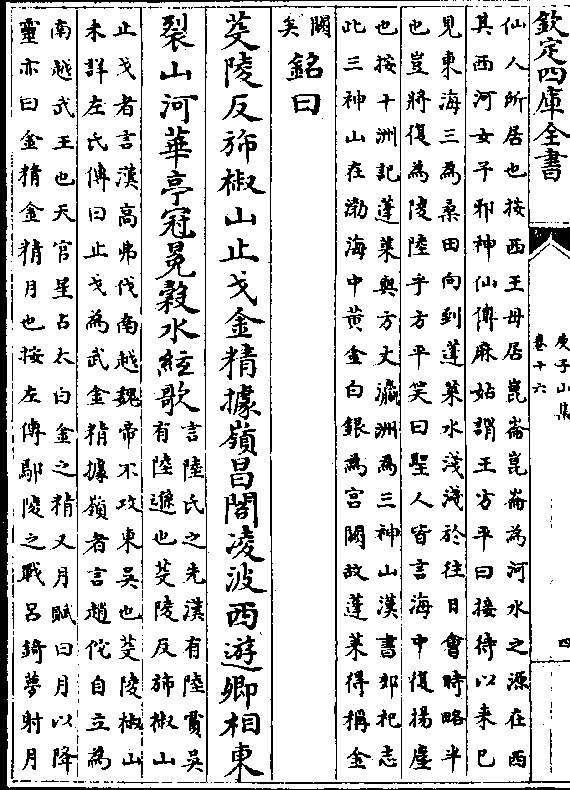 欽定四庫全書
庾子山集
卷十六
四
仙人所居也按西王母居崑崙崑崙為河水之源在西
其西河女子邪神仙傳麻姑謂王方平曰接待以來已
見東海三為桑田向到蓬萊水淺淺於往日會時略半
也豈將復為陵陸乎方平笑曰聖人皆言海中復揚塵
也按十洲記蓬萊與方丈瀛洲為三神山漢書郊祀志
此三神山在渤海中黄金白銀為宮闕故蓬萊得稱金
闕
矣
銘曰
芟陵反斾椒山止戈金精據嶺昌閤凌波西遊卿相東
裂山河華亭冠冕穀水絃歌
言陸氏之先漢有陸賈吳
有陸遜也芟陵反斾椒山
止戈者言漢高弗伐南越魏帝不攻東吳也芟陵椒山
未詳左氏傳曰止戈為武金精據嶺者言趙佗自立為
南越武王也天官星占太白金之精又月賦曰月以降
靈亦曰金精金精月也按左傳鄢陵之戰呂錡夢射月